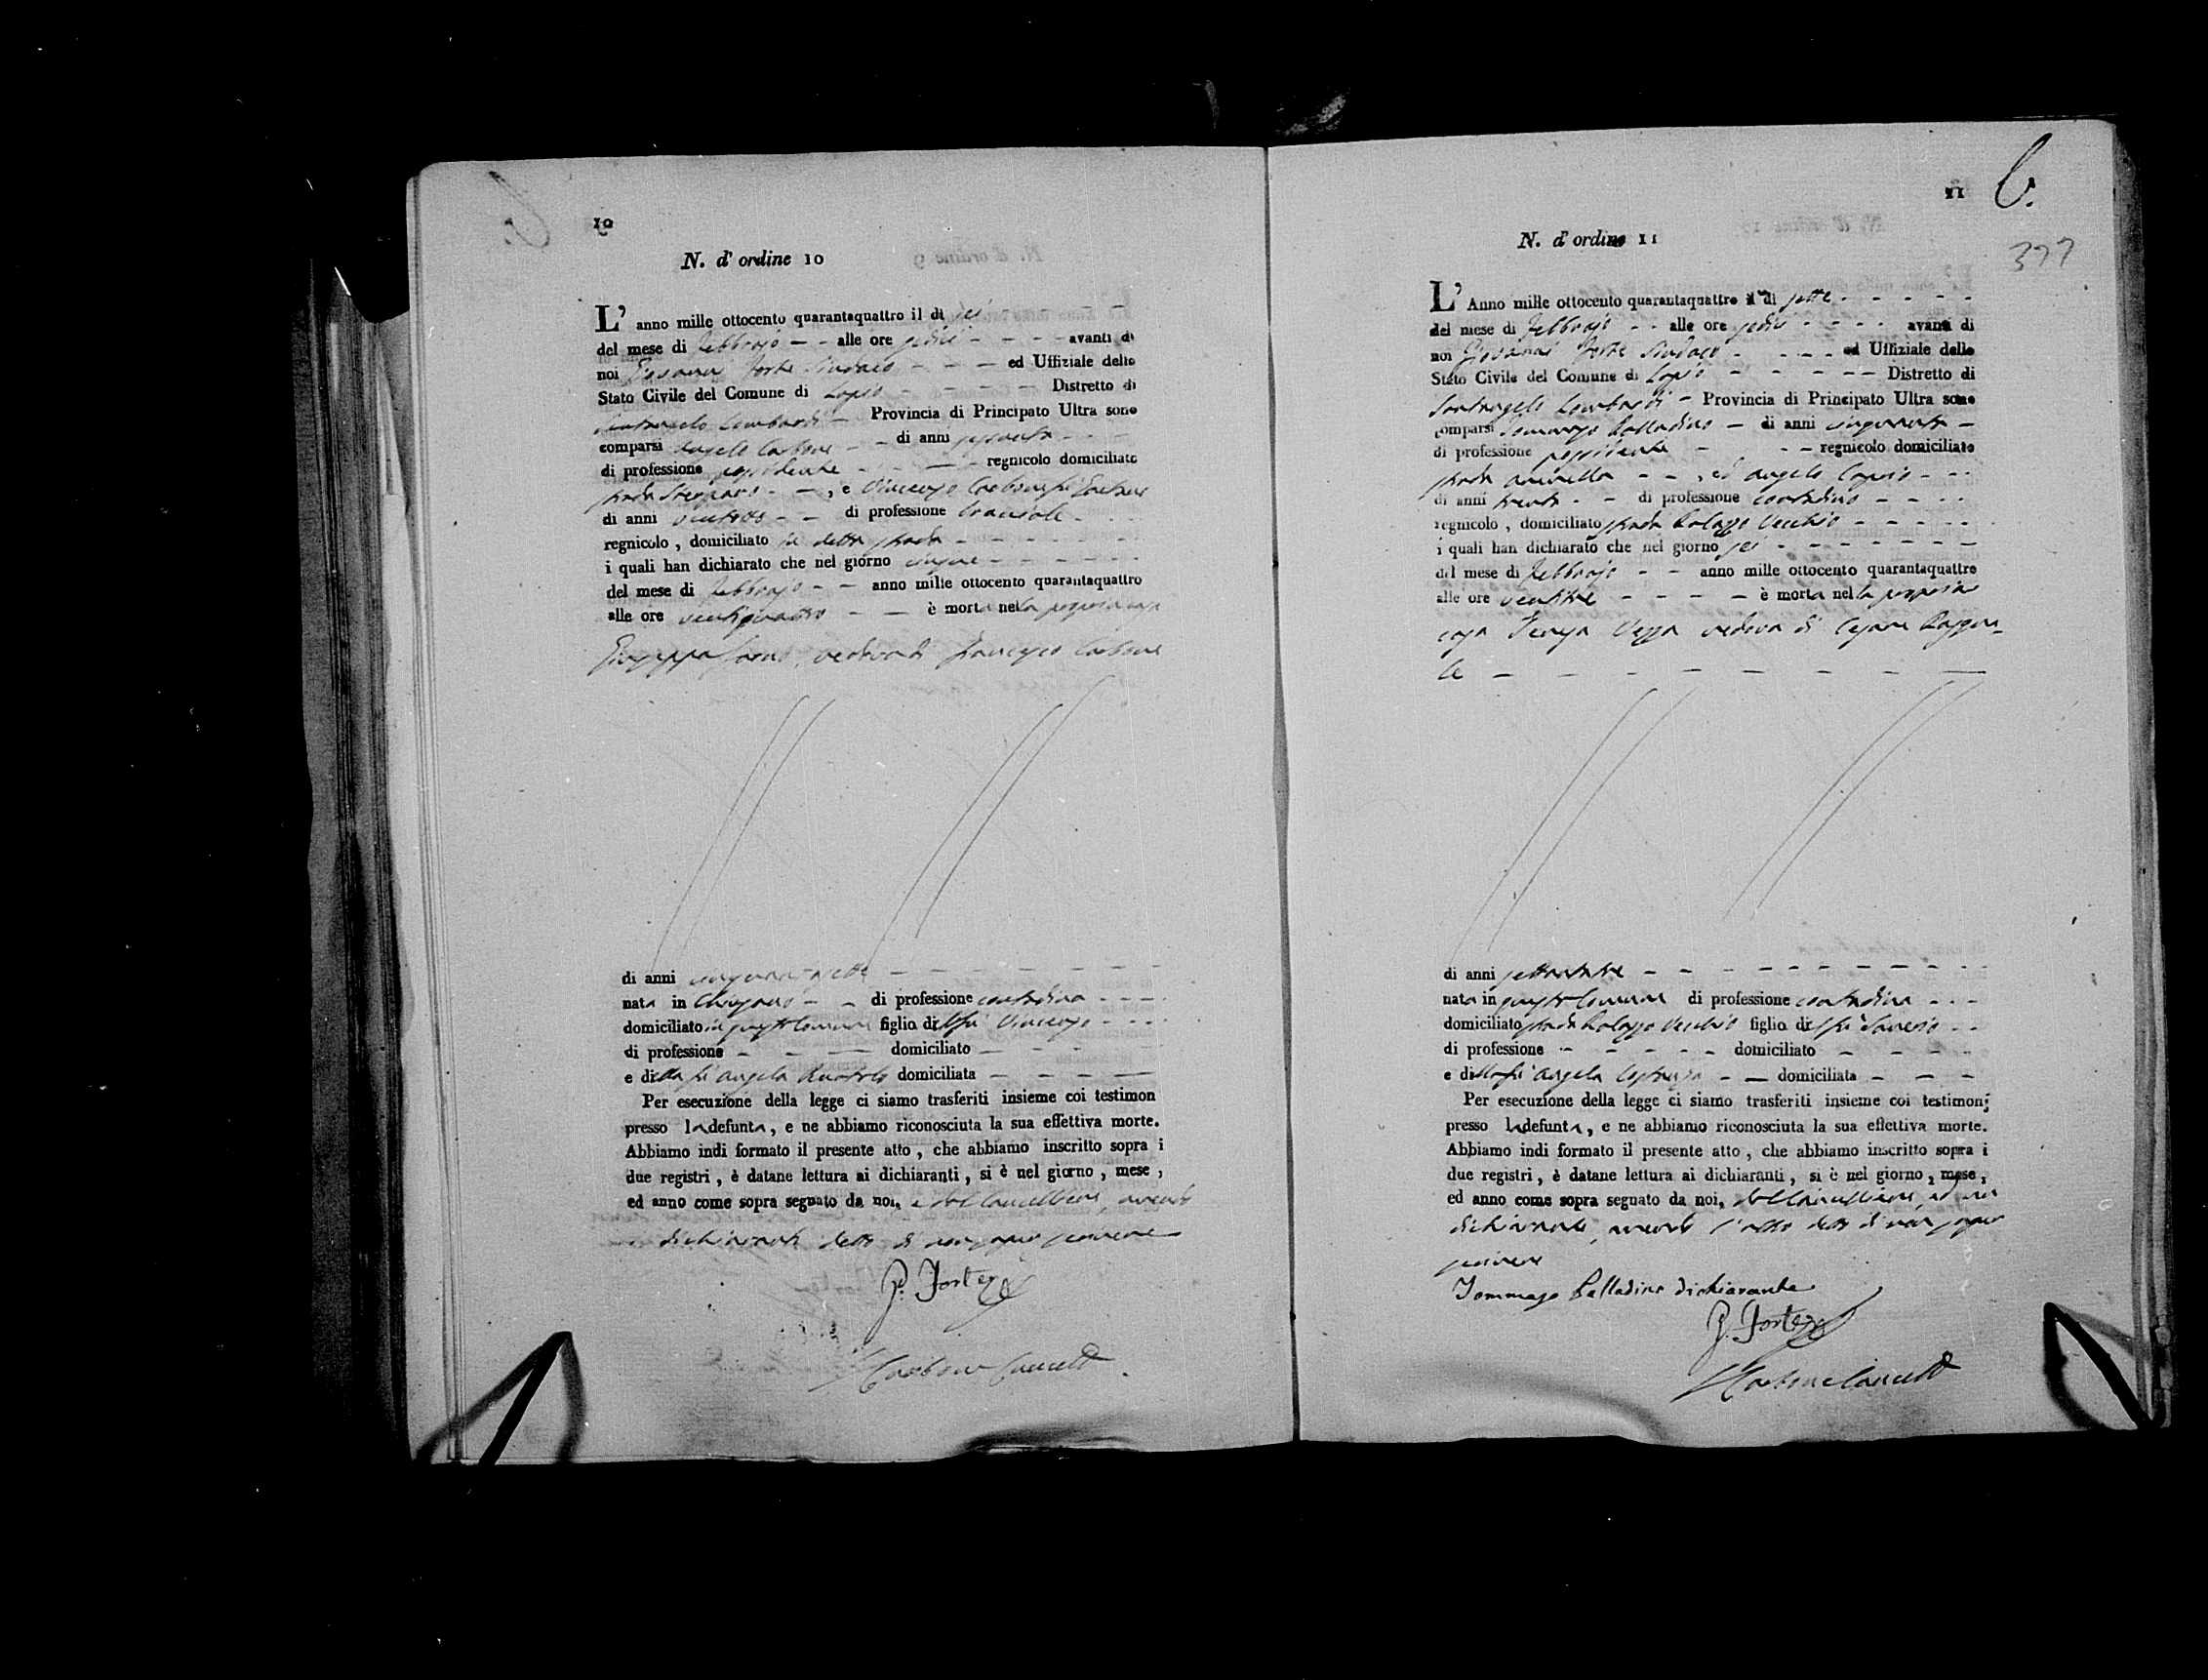 10
N. d' ordine 10
L' anno mille ottocento quarantaquattro il di sei
del mese di Febbrajo - - alle ore sedici - - - - avanti di
noi Giovanni Forte Sindaco - - - ed Uffiziale dello
Stato Civile del Comune di Lapio - - - - - Distretto di
Santangelo Lombardi - Provincia di Principato Ultra sono
comparsi Angelo Carbone - - di anni sessanta - - -
di professione possidente - - - regnicolo domiciliato
strada - - , e Vincenzo Carbone fu Gaetano
di anni - - di professione
regnicolo , domiciliato in detta strada - - - - - - -
i quali han dichiarato che nel giorno cinque - - - - - -
del mese di Febbrajo - - anno mille ottocento quarantaquattro
alle ore ventiquattro - - è morta nella propria casa
Giuseppa vedova di Francesco Carbone
di anni cinquantasette - - - - - - - -
nata in Chiusano - - di professione contadina - - - -
domiciliato in questo Comune figlia del fu Vincenzo - - - -
di professione - - - domiciliato - - -
e della fu Angela domiciliata - - - -
Per esecuzione della legge ci siamo trasferiti insieme coi testimon
presso la defunta, e ne abbiamo riconosciuta la sua effettiva morte.
Abbiamo indi formato il presente atto , che abbiamo inscritto sopra i
due registri , è datane lettura ai dichiaranti , si è nel giorno , mese ,
ed anno come sopra segnato da noi, e dal Cancelliere, avendo
dichiaranti detto di non saper scrivere
G. Forte
Carbone Cancell
11
6.
377
N. d' ordine 11
L' Anno mille ottocento quarantaquattro il di sette - - - - -
del mese di Febbrajo - - alle ore sedici - - - - avanti di
noi Giovanni Forte Sindaco - - - - ed Uffiziale dello
Stato Civile del Comune di Lapio - - - - - Distretto di
Santangelo Lombardi - Provincia di Principato Ultra sono
comparsi Tommaso Palladino - di anni cinquanta -
di professione possidente - - - regnicolo domiciliato
strada - - , ed Angelo - - -
di anni trenta - - di professione contadino - - - -
regnicolo , domiciliato strada Palazzo Vecchio - - - - -
i quali han dichiarato che nel giorno sei - - - - - - -
del mese di Febbrajo - - anno mille ottocento quarantaquattro
alle ore ventitre - - - - è morta nella propria
casa Teresa Vezza vedova di Cesare
le - - - - - - - -
di anni settantatre - - - - - - - - -
nata in questo Comune di professione contadina - - -
domiciliato strada Palazzo Vecchio figlia del fu Saverio - -
di professione - - - - - domiciliato - - - -
e della fu Angela - - domiciliata - - -
Per esecuzione della legge ci siamo trasferiti insieme coi testimonj
presso la defunta, e ne abbiamo riconosciuta la sua effettiva morte.
Abbiamo indi formato il presente atto , che abbiamo inscritto sopra i
due registri , è datane lettura ai dichiaranti , si è nel giorno , mese ,
ed anno come sopra segnato da noi, dal Cancelliere, ed un
dichiarante, avendo l'altro detto di non saper
scrivere
Tommaso Palladino dichiarante
G. Forte
Carbone Cancell